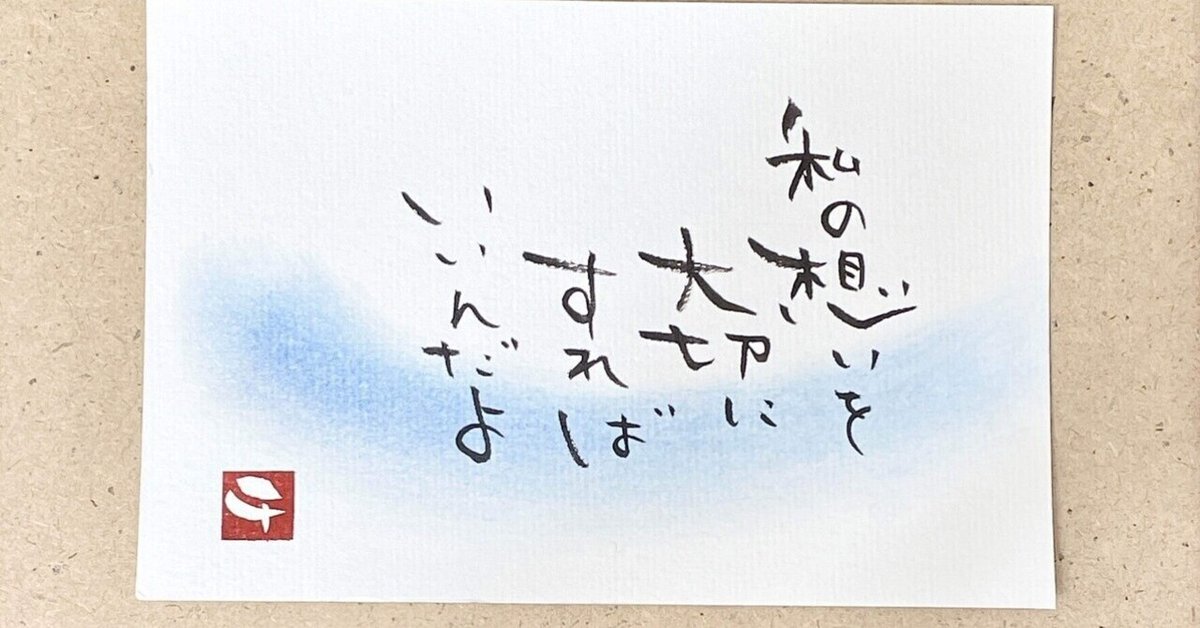 私の想いを
大切に
すれば
いいんだよ